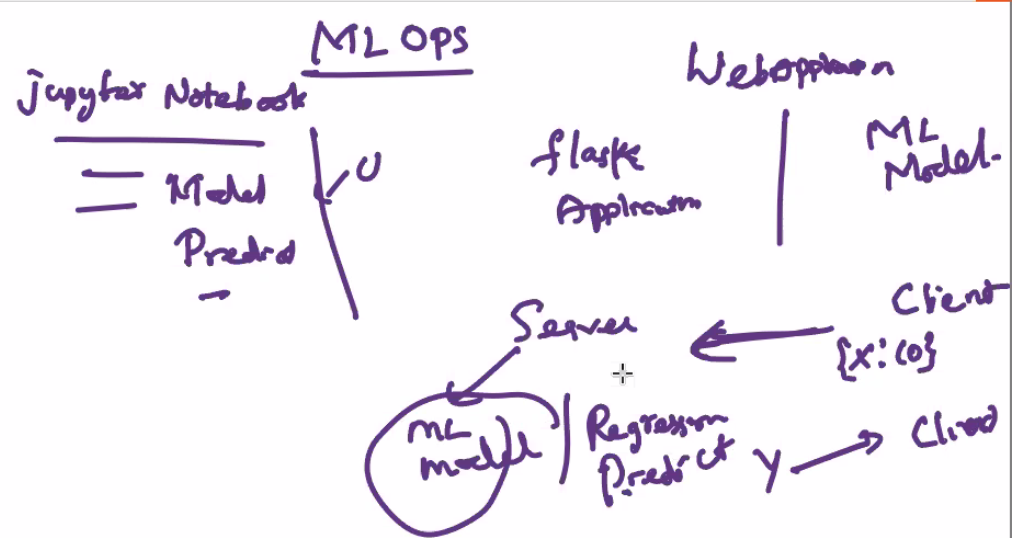 ML OPS
Jupyter Notebook
Model
Predict
U
Flask
Application
Web Application
ML
Model
Server
Client
{x:10}
ML
model
Regression
Predict
Y
Client